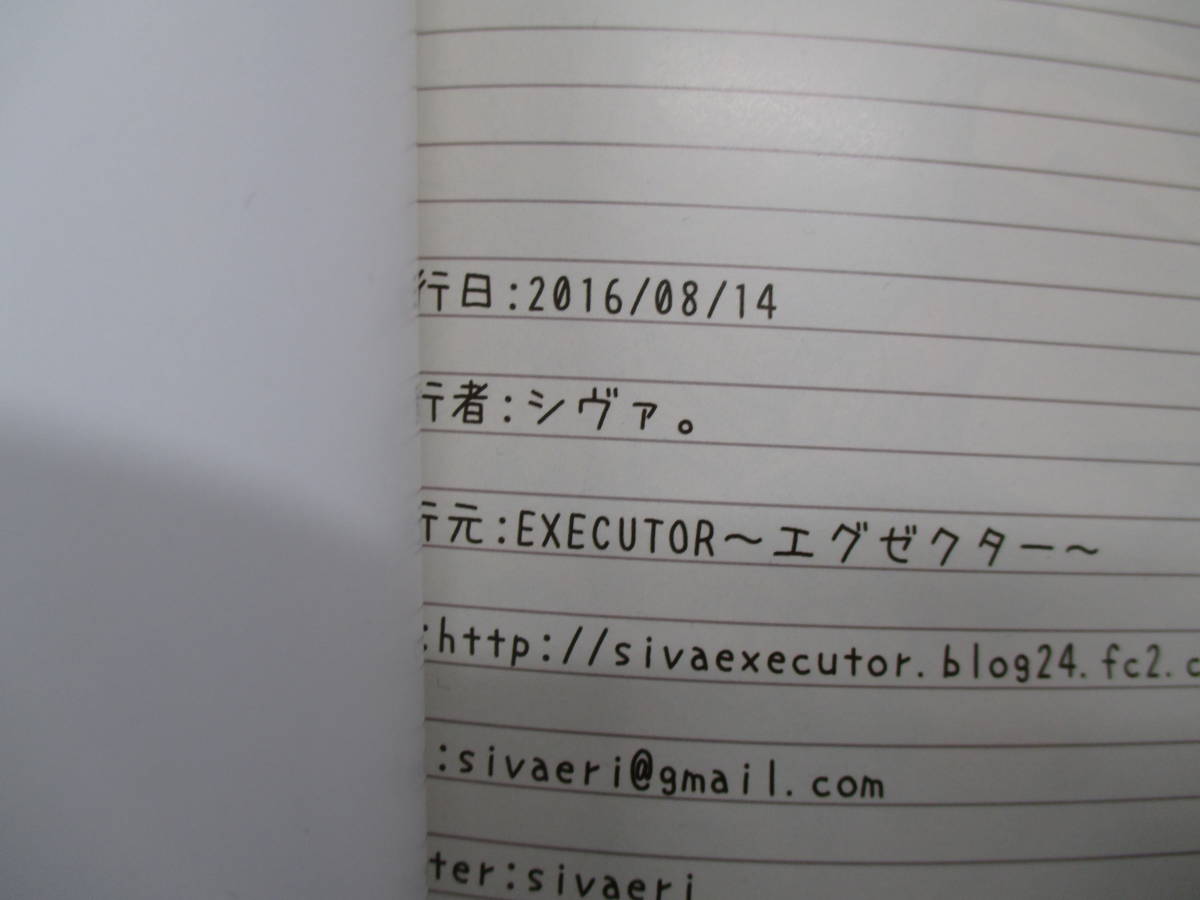 行日:2016/08/14
行者:シヴァ。
行元:EXECUTOR～エグゼクター～
:http://sivaexecutor.blog24.fc2.c
:sivaeri@gmail.com
ter:sivaeri